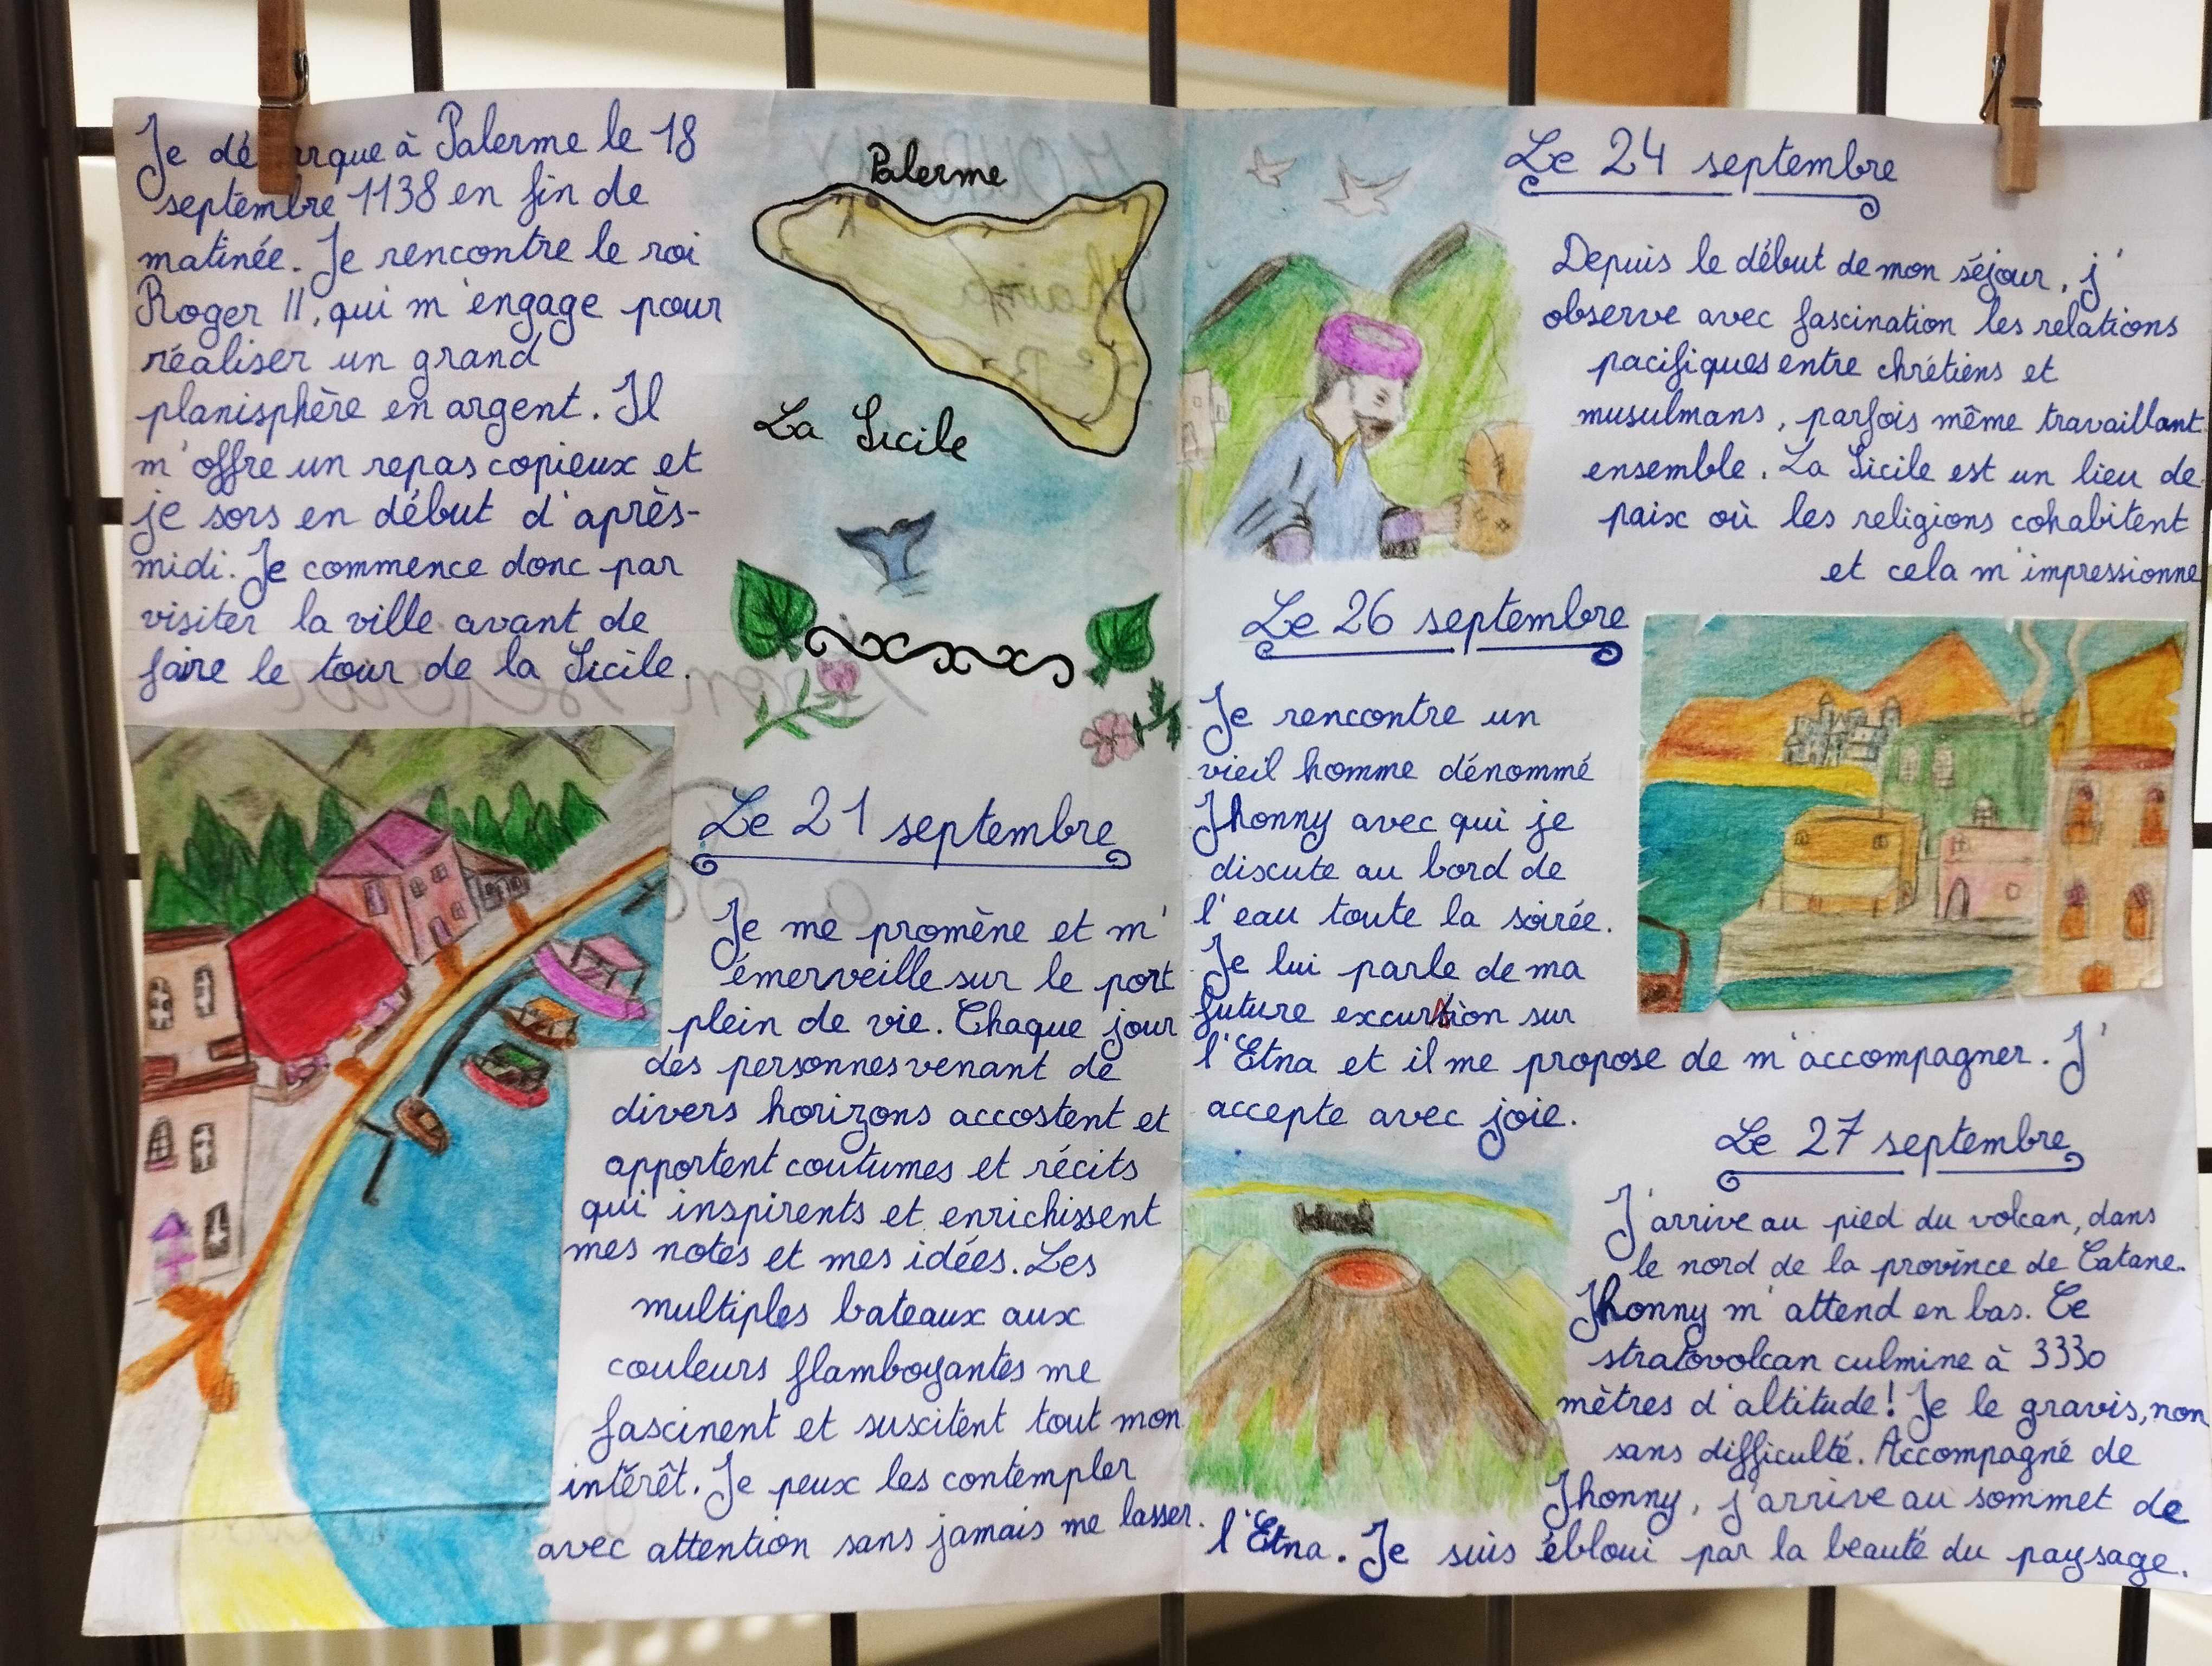 Je dé arque à Palerme le 18
septembre 1138 en fin de
matinée. Je rencontre le roi
Roger II, qui m'engage pour
réaliser un grand
planisphère en argent. Il
m'offre un repas copieux et
je sors en début d'après-
midi. Je commence donc par
visiter la ville avant de
faire le tour de la Sicile.
Palerme
La Sicile
Le 21 septembre
Je me promène et m'
émerveille sur le port
plein de vie. Chaque jour
des personnes venant de
divers horizons accostent et
apportent coutumes et récits
qui inspirents et enrichissent
mes notes et mes idées. Les
multiples bateaux aux
couleurs flamboyantes me
fascinent et suscitent tout mon
intérêt. Je peux les contempler
avec attention sans jamais me lasser.
Le 24 septembre
Depuis le début de mon séjour, j'
observe avec fascination les relations
pacifiques entre chrétiens et
musulmans, parfois même travaillant
ensemble. La Sicile est un lieu de
paix où les religions cohabitent
et cela m'impressionne
Le 26 septembre
Je rencontre un
vieil homme dénommé
Jhonny avec qui je
discute au bord de
l'eau toute la soirée.
Je lui parle de ma
future excursion sur
l'Etna et il me propose de m'accompagner. J'
accepte avec joie.
Le 27 septembre
J'arrive au pied du volcan, dans
le nord de la province de Catane.
Jhonny m'attend en bas. Ce
stratovolcan culmine à 3330
mètres d'altitude! Je le gravis, non
sans difficulté. Accompagné de
Jhonny, j'arrive au sommet de
l'Etna. Je suis ébloui par la beauté du paysage.